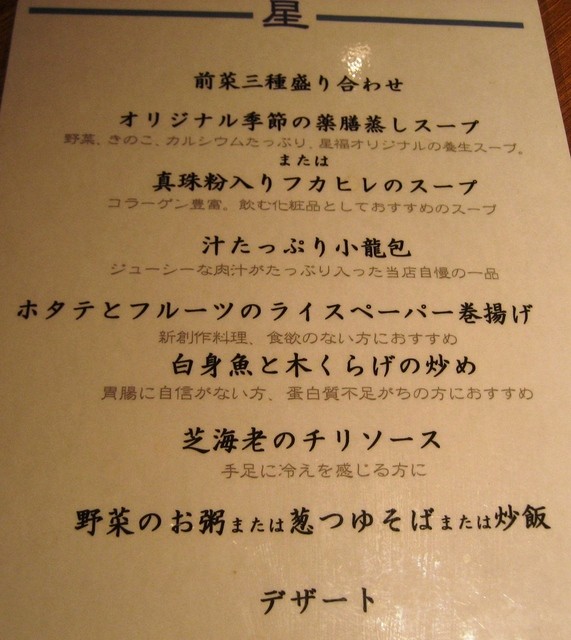 星
前菜三種盛り合わせ
オリジナル季節の薬膳蒸しスープ
野菜、きのこ、カルシウムたっぷり、星福オリジナルの養生スープ。
または
真珠粉入りフカヒレのスープ
コラーゲン豊富。飲む化粧品としておすすめのスープ
汁たっぷり小龍包
ジューシーな肉汁がたっぷり入った当店自慢の一品
ホタテとフルーツのライスペーパー巻揚げ
新創作料理、食欲のない方におすすめ
白身魚と木くらげの炒め
胃腸に自信がない方、蛋白質不足がちの方におすすめ
芝海老のチリソース
手足に冷えを感じる方に
野菜のお粥または葱つゆそばまたは炒飯
デザート